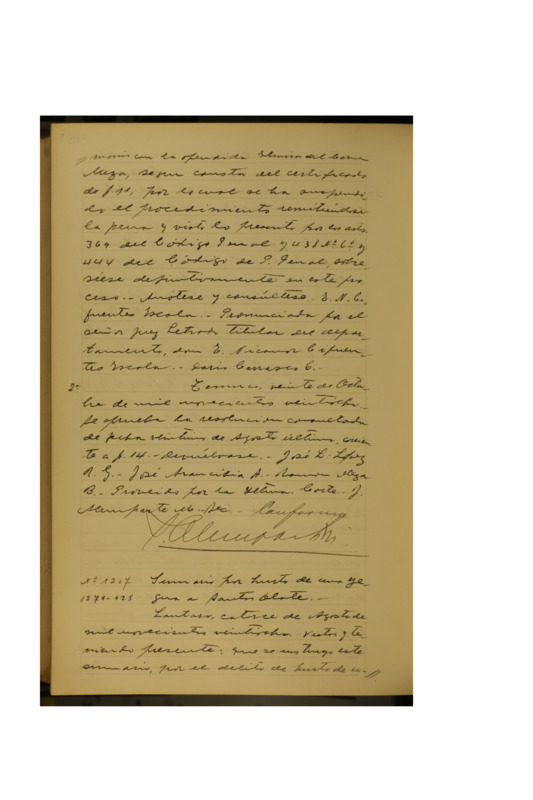 monio con la ofendida Elmira del Carmen
Meza, segun consta del certificado
de f 1ª, por lo cual se ha suspendi-
do el procedimiento remitiéndose
la pena y visto lo presente por los arts.
369 del Código Penal y 438 Nº 6º y
444 del Código de P. Penal, sobre-
séese definitivamente en este pro
ceso.- Anótese y consúltese. E. N. Ci-
fuentes Escala.- Pronunciada por el
señor juez Letrado titular del depar-
tamento, don E. Nicanor Cifuen-
tes Escala.- Dario Carrasco C.-
2º Temuco, veinte de Octu-
bre de mil novecientos veintiocho.
Se aprueba la resolucion consultada
de fecha veintiuno de Agosto último, corrien
te a f. 14.- Devuélvase.- José L. López
R. G.- José Arancibia A.- Ramon Meza
B.- Proveido por la Iltma. Corte.- J.
Alemparte M. Sec. Conforme
J. Alemparte M.
Nº 1217 Sumario por hurto de una ye
1274-128 gua a Santos Olate.-
Lautaro, catorce de Agosto de
mil novecientos veintiocho. Vistos y te-
niendo presente: que se instruyó este
sumario, por el delito de hurto de u-//.